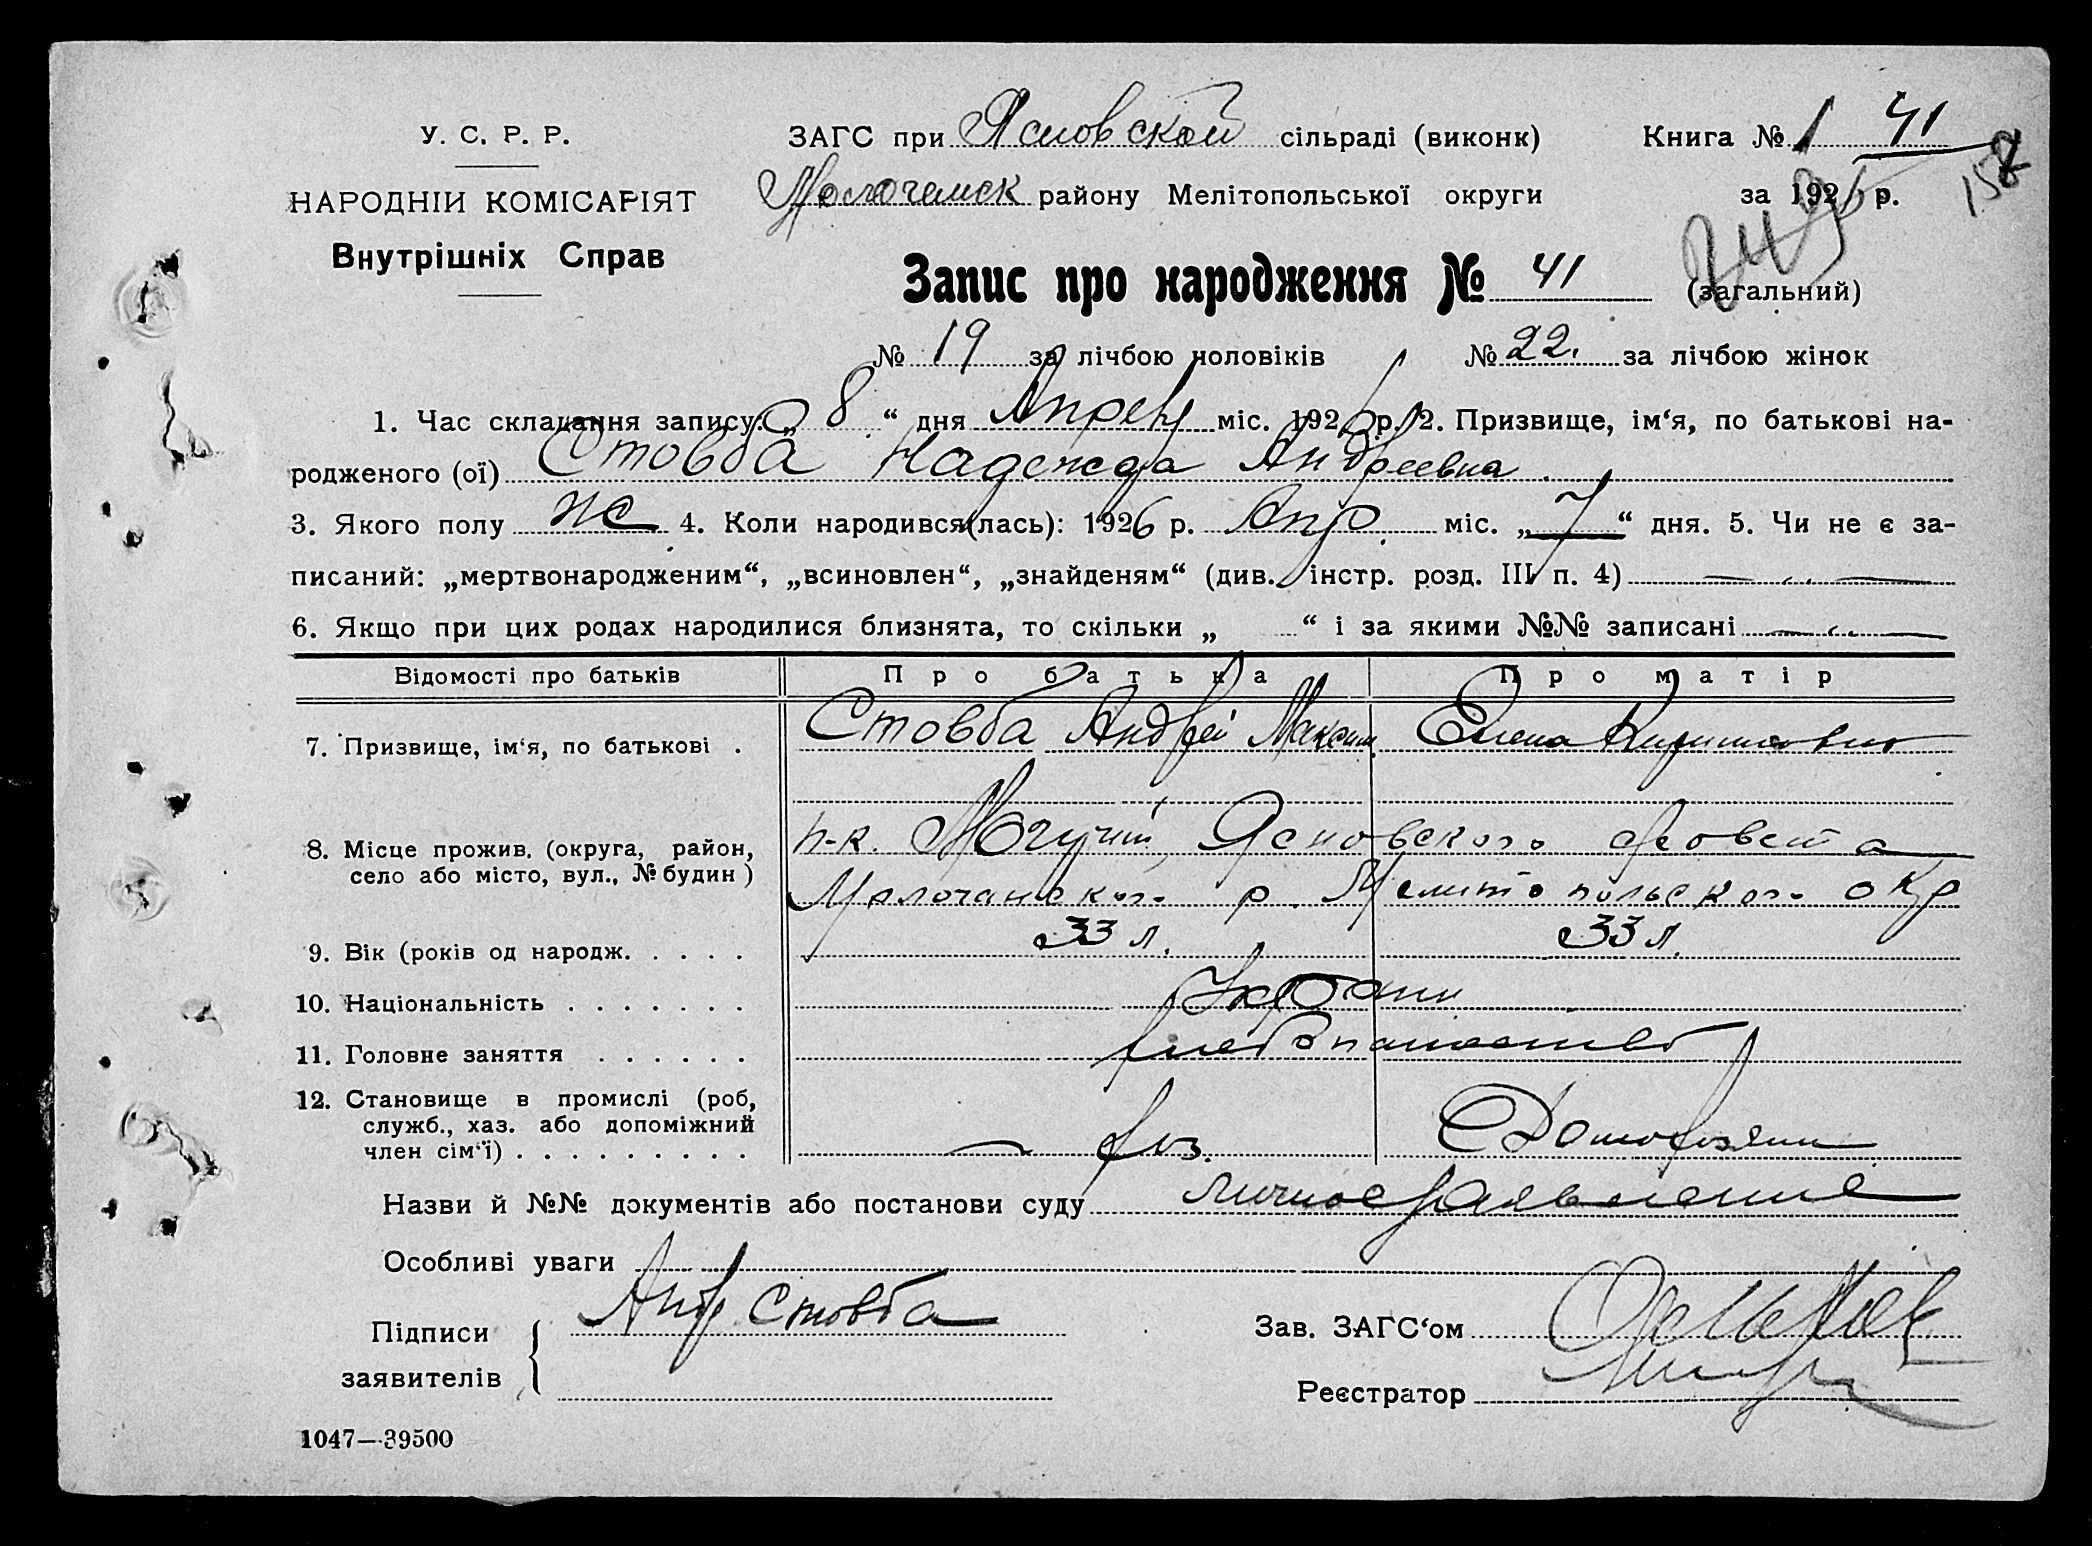 У. С. Р. Р.
НАРОДНІЙ КОМІСАРІЯТ
Внутрішніх Справ
ЗАГС при Ясновской сільраді (виконк)
Молочанск району Мелітопольської округи
Книга № 1 41
за 1926 р.
158
Запис про народження № 41 (загальний)
№ 19 за лічбою чоловіків № 22. за лічбою жінок
1. Час складання запису: „ 8 “ дня Апреля міс. 1926 р. 2. Призвище, ім‘я, по батькові на-
родженого (ої) Стовба Надежда Андреевна
3. Якого полу ж 4. Коли народився(лась): 1926 р. Апр. міс. „ 7 “ дня. 5. Чи не є за-
писаний: „мертвонародженим“, „всиновлен“, „знайденям“ (див. інстр. розд. III п. 4)
6. Якщо при цих родах народилися близнята, то скільки „ “ і за якими №№ записані
Відомості про батьків Про батька Про матір
7. Призвище, ім‘я, по батькові . Стовба Андрей Максим. Елена
8. Місце прожив. (округа, район, село або місто, вул., № будин) п-к. Могучий, Ясновского с/совета
Молочанского р. Мелитопольского окр
9. Вік (років од народж. . . . . 33 л. 33 л.
10. Національність . . . . . . . Украин
11. Головне заняття . . . . . . хлебопашество
12. Становище в промислі (роб,
служб., хаз. або допоміжний
член сім‘ї) . . . . . . . . . хоз. Домохозяин
Назви й №№ документів або постанови суду личное заявление
Особливі уваги
Підписи
заявителів
Андр Стовба
Зав. ЗАГС‘ом
Реєстратор
1047—39500